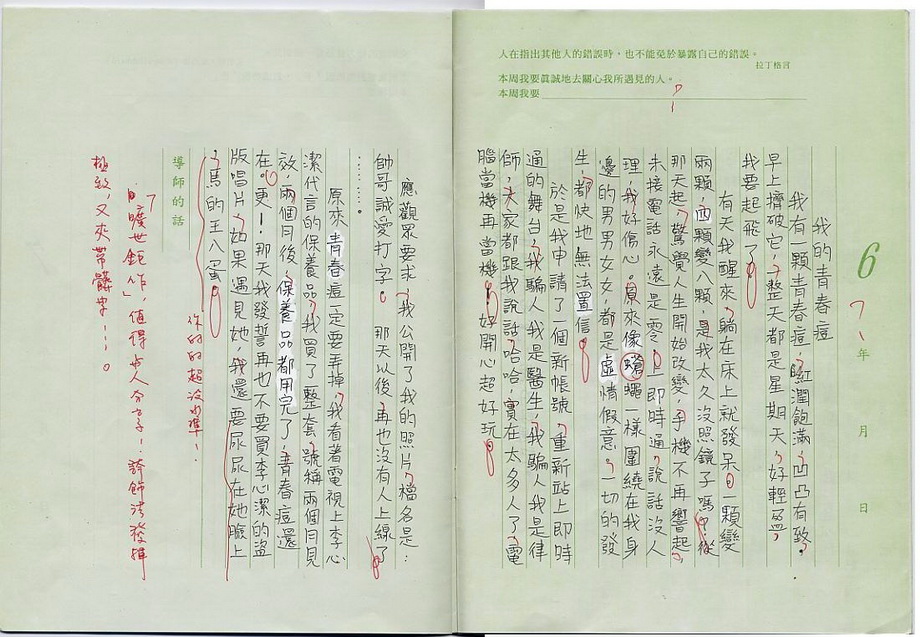 人在指出其他人的錯誤時，也不能免於暴露自己的錯誤。
拉丁格言
本周我要真誠地去關心我所遇見的人。
本周我要
6
年 月 日
我的青春痘
我有一顆青春痘，紅潤飽滿，凹凸有致，
早上擠破它，整天都是星期天，好輕盈，
我要起飛了。
有天我醒來，躺在床上就發呆，一顆變
兩顆，四顆變八顆，是我太久沒照鏡子嗎？從
那天起，驚覺人生開始改變，手機不再響起，
未接電話永遠是零，即時通，說話沒人
理，我好傷心。原來像蒼蠅一樣圍繞在我身
邊的男男女女，都是虛情假意，一切的發
生，都快地無法置信。
於是我申請了一個新帳號，重新站上即時
通的舞台，我騙人我是醫生，我騙人我是律
師，大家都跟我說話，哈哈，實在太多人了，電
腦當機再當機，好開心超好玩。
應觀眾要求，我公開了我的照片，檔名是：
帥哥誠愛打字。那天以後，再也沒有人上線了
……。
原來青春痘一定要弄掉，我看著電視上李心
潔代言的保養品，我買了整套，號稱兩個月見
效，兩個月後，保養品都用完了，青春痘還
在。更！那天我發誓再也不要買李心潔的盜
版唱片，如果遇見她，我還要尿尿在她臉上
，馬的王八蛋。
導師的話
你的超沒水準！
「曠世鉅作」，值得
誇飾法發揮
極致，又夾帶髒字…！。